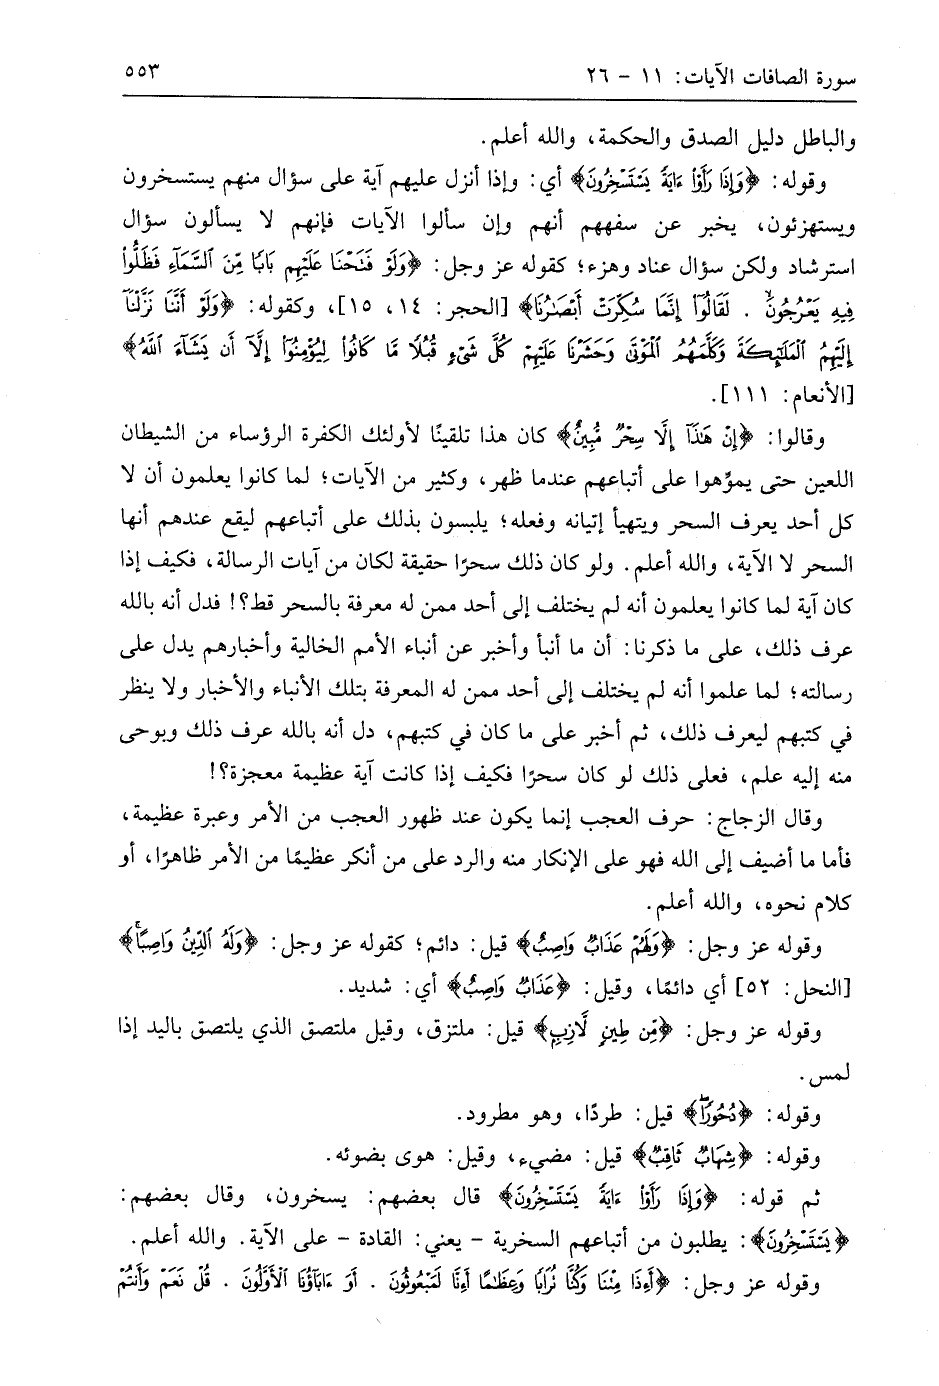 سورة الصافات الآيات: ١١ - ٢٦ ٥٥٣
والباطل دليل الصدق والحكمة، والله أعلم.
وقوله: ﴿وَإِذَا رَأَوْا ءَايَةً يَسْتَسْخِرُونَ﴾ أي: وإذا أنزل عليهم آية على سؤال منهم يستسخرون
ويستهزئون، يخبر عن سفههم أنهم وإن سألوا الآيات فإنهم لا يسألون سؤال
استرشاد ولكن سؤال عناد وهزء؛ كقوله عز وجل: ﴿وَلَوْ فَتَحْنَا عَلَيْهِم بَابًا مِّنَ ٱلسَّمَآءِ فَظَلُّوا
فِيهِ يَعْرُجُونَ . لَقَالُوٓا إِنَّمَا سُكِّرَتْ أَبْصَـٰرُنَا﴾ [الحجر: ١٤، ١٥]، وكقوله: ﴿وَلَوْ أَنَّنَا نَزَّلْنَآ
إِلَيْهِمُ ٱلْمَلَـٰٓئِكَةَ وَكَلَّمَهُمُ ٱلْمَوْتَىٰ وَحَشَرْنَا عَلَيْهِمْ كُلَّ شَىْءٍ قُبُلًا مَّا كَانُوا لِيُؤْمِنُوٓا إِلَّآ أَن يَشَآءَ ٱللَّهُ﴾
[الأنعام: ١١١].
وقالوا: ﴿إِنْ هَـٰذَآ إِلَّا سِحْرٌ مُّبِينٌ﴾ كان هذا تلقينًا لأولئك الكفرة الرؤساء من الشيطان
اللعين حتى يموِّهوا على أتباعهم عندما ظهر، وكثير من الآيات؛ لما كانوا يعلمون أن لا
كل أحد يعرف السحر ويتهيأ إتيانه وفعله؛ يلبسون بذلك على أتباعهم ليقع عندهم أنها
السحر لا الآية، والله أعلم. ولو كان ذلك سحرًا حقيقة لكان من آيات الرسالة، فكيف إذا
كان آية لما كانوا يعلمون أنه لم يختلف إلى أحد ممن له معرفة بالسحر قط؟! فدل أنه بالله
عرف ذلك، على ما ذكرنا: أن ما أنبأ وأخبر عن أنباء الأمم الخالية وأخبارهم يدل على
رسالته؛ لما علموا أنه لم يختلف إلى أحد ممن له المعرفة بتلك الأنباء والأخبار ولا ينظر
في كتبهم ليعرف ذلك، ثم أخبر على ما كان في كتبهم، دل أنه بالله عرف ذلك وبوحى
منه إليه علم، فعلى ذلك لو كان سحرًا فكيف إذا كانت آية عظيمة معجزة؟!
وقال الزجاج: حرف العجب إنما يكون عند ظهور العجب من الأمر وعبرة عظيمة،
فأما ما أضيف إلى الله فهو على الإنكار منه والرد على من أنكر عظيمًا من الأمر ظاهرًا، أو
كلام نحوه، والله أعلم.
وقوله عز وجل: ﴿وَلَهُمْ عَذَابٌ وَاصِبٌ﴾ قيل: دائم؛ كقوله عز وجل: ﴿وَلَهُ ٱلدِّينُ وَاصِبًا﴾
[النحل: ٥٢] أي دائمًا، وقيل: ﴿عَذَابٌ وَاصِبٌ﴾ أي: شديد.
وقوله عز وجل: ﴿مِّن طِينٍ لَّازِبٍ﴾ قيل: ملتزق، وقيل ملتصق الذي يلتصق باليد إذا
لمس.
وقوله: ﴿دُحُورًا﴾ قيل: طردًا، وهو مطرود.
وقوله: ﴿شِهَابٌ ثَاقِبٌ﴾ قيل: مضيء، وقيل: هوى بضوئه.
ثم قوله: ﴿وَإِذَا رَأَوْا ءَايَةً يَسْتَسْخِرُونَ﴾ قال بعضهم: يسخرون، وقال بعضهم:
﴿يَسْتَسْخِرُونَ﴾: يطلبون من أتباعهم السخرية - يعني: القادة - على الآية. والله أعلم.
وقوله عز وجل: ﴿أَءِذَا مِتْنَا وَكُنَّا تُرَابًا وَعِظَـٰمًا أَءِنَّا لَمَبْعُوثُونَ . أَوَ ءَابَآؤُنَا ٱلْأَوَّلُونَ . قُلْ نَعَمْ وَأَنتُمْ